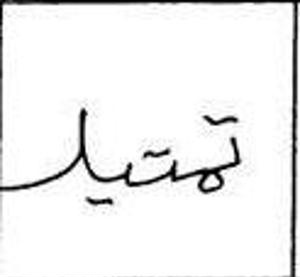 تمتيل